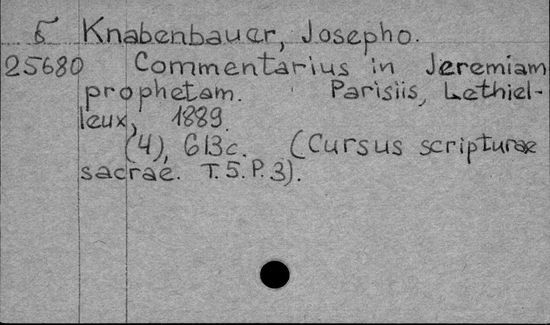 5 Knabenbauer, Josepho.
25680 Commentarius in Jeremiam
prophetam. Parisiis, Lethiel-
leux, 1889.
(4), 613c. (Cursus scripturae
sacrae. T.5. P.3).